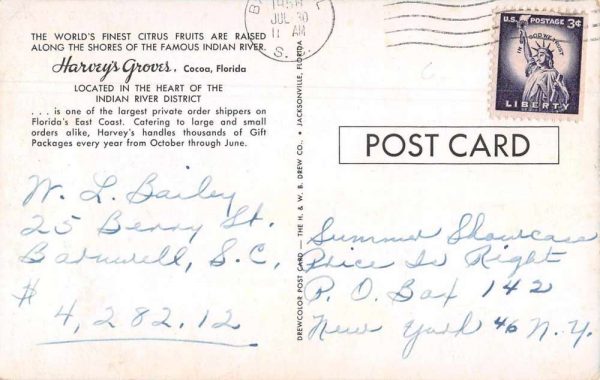 THE WORLD'S FINEST CITRUS FRUITS ARE RAISED
ALONG THE SHORES OF THE FAMOUS INDIAN RIVER.
Harvey's Groves, Cocoa, Florida
LOCATED IN THE HEART OF THE
INDIAN RIVER DISTRICT
. . . is one of the largest private order shippers on
Florida's East Coast. Catering to large and small
orders alike, Harvey's handles thousands of Gift
Packages every year from October through June.
W. L. Bailey
25 Berry St.
Barnwell, S.C,
$
4,282.12
DREWCOLOR POST CARD — THE H. & W. B. DREW CO., • JACKSONVILLE, FLORIDA
JUL 30
11 AM
S. C.
U.S. POSTAGE 3¢
IN GOD WE TRUST
LIBERTY
POST CARD
Summer Showcase
Price Is Right
P. O. Box 142
New York 46 N.Y.